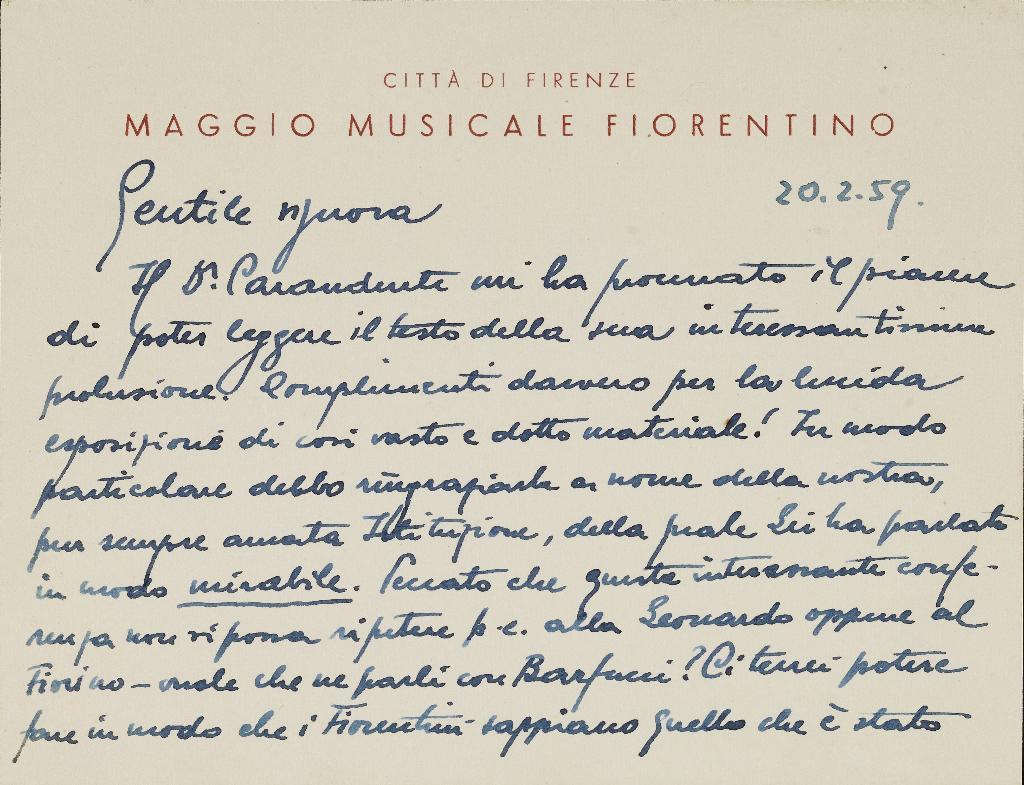 CITTÀ DI FIRENZE
MAGGIO MUSICALE FIORENTINO
20.2.59.
Gentile signora
Il Dr. Carandente mi ha procurato il piacere
di poter leggere il testo della sua interessantissima
prolusione. Complimenti davvero per la lucida
esposizione di così vasto e dotto materiale! In modo
particolare debbo ringraziarla a nome della nostra,
pur sempre amata Istituzione, della quale Lei ha parlato
in modo mirabile. Peccato che questa interessante confe-
renza non si possa ripetere p.e. alla Leonardo oppure al
Fiorino – vuole che ne parli con Barfucci? Ci terrei potere
fare in modo che i Fiorentini sappiano quello che è stato